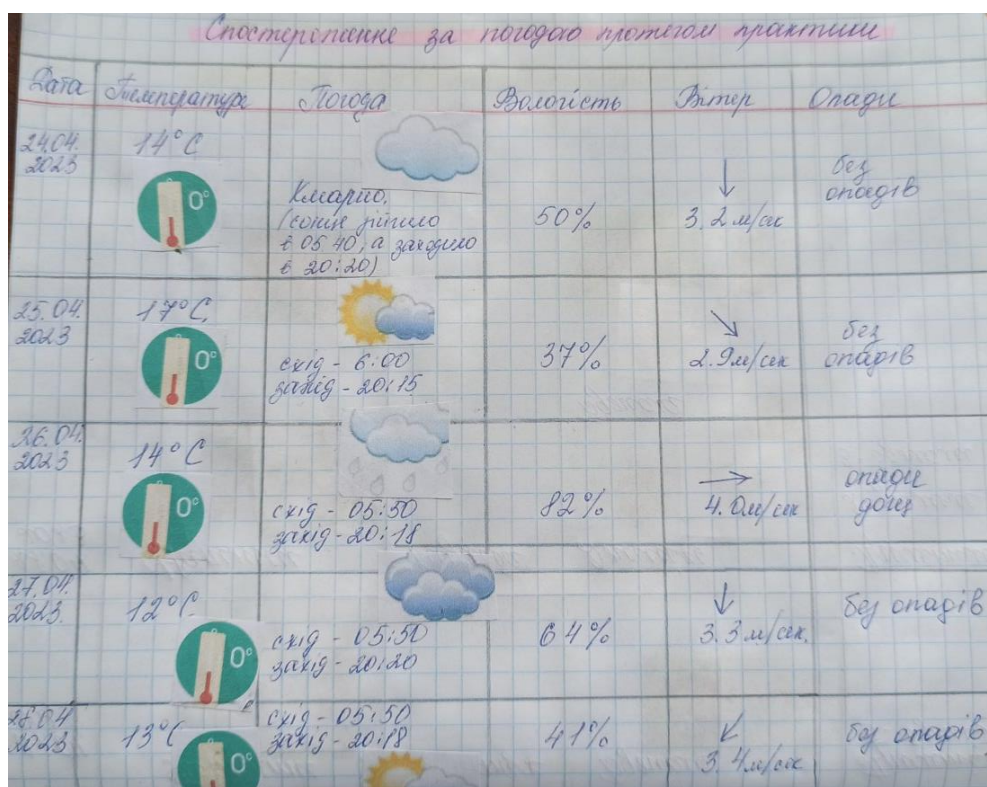 Спостереження за погодою протягом практики
Дата Температура Погода Вологість Вітер Опади
24.04. 2023
14°C
0°
Хмарно.
(сонце зійшло
о 05 40, а заходило
о 20:20)
50%
3.2 м/сек
без
опадів
25.04. 2023
17°C.
0°
схід - 6:00
захід - 20:15
37%
2.9м/сек
без
опадів
26.04. 2023
14°C
0°
схід - 05:50
захід - 20:18
82%
4.0м/сек
опади
дощ
27.04. 2023.
12°C.
0°
схід - 05:50
захід - 20:20
64%
3.3 м/сек.
без опадів
28.04 2023
13°C
0°
схід - 05:50
захід - 20:18
41%
3.4м/сек
без опадів